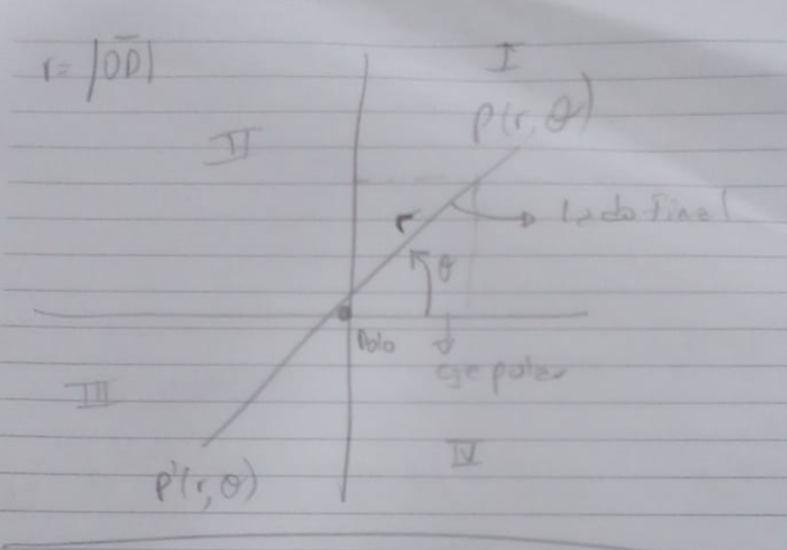 r = |OP|
I
II
P(r, θ)
r
lado final
θ
Polo
eje polar
III
IV
P'(r, θ)